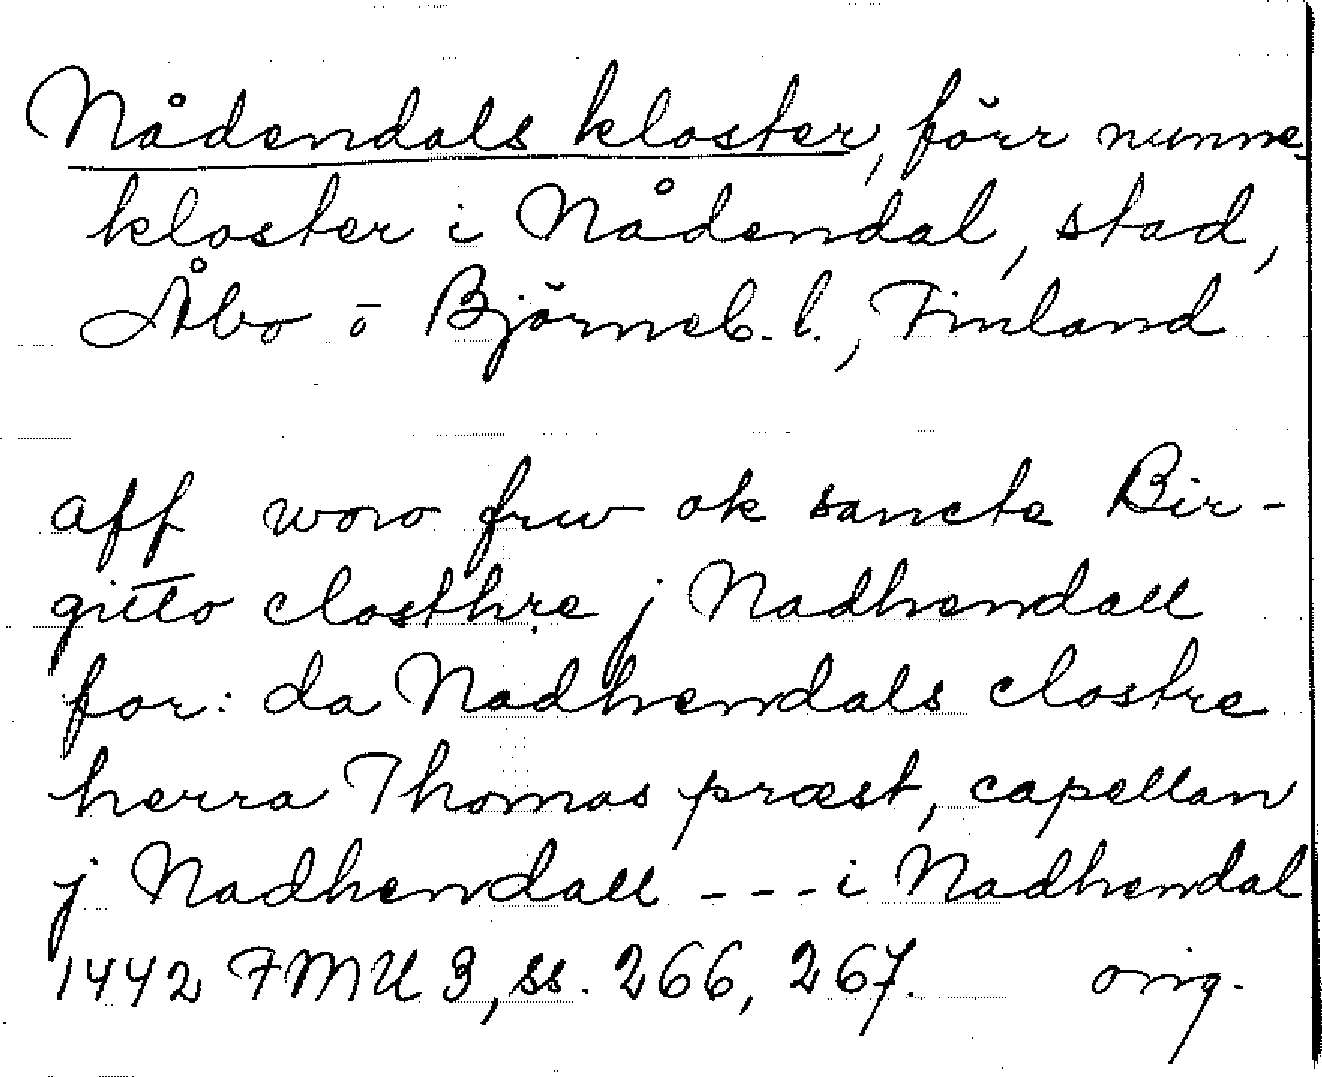 Nådendals kloster, förr nunne-
kloster i Nådendal, stad,
Åbo o Björneb. l., Finland
aff woro frw ok sancte Bir-
gitto closthre j Nadhendall
for: da Nadhendals clostre
herra Thomas præst, capellan
j Nadhendall --- i Nadhendal
1442 FMU 3, ss. 266, 267. orig.